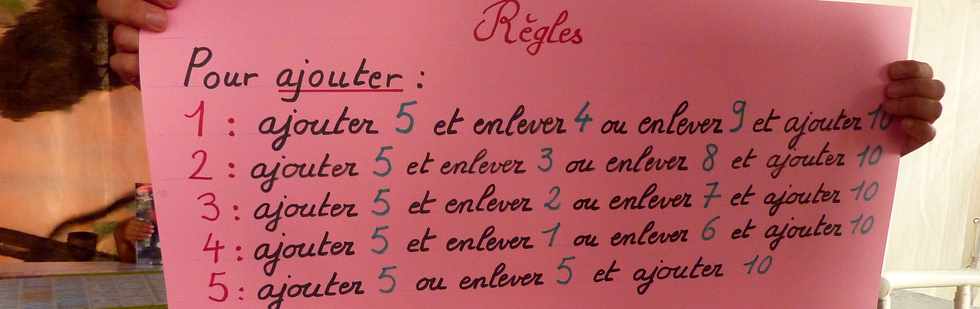 Règles
Pour ajouter :
1 : ajouter 5 et enlever 4 ou enlever 9 et ajouter 10
2 : ajouter 5 et enlever 3 ou enlever 8 et ajouter 10
3 : ajouter 5 et enlever 2 ou enlever 7 et ajouter 10
4 : ajouter 5 et enlever 1 ou enlever 6 et ajouter 10
5 : ajouter 5 ou enlever 5 et ajouter 10